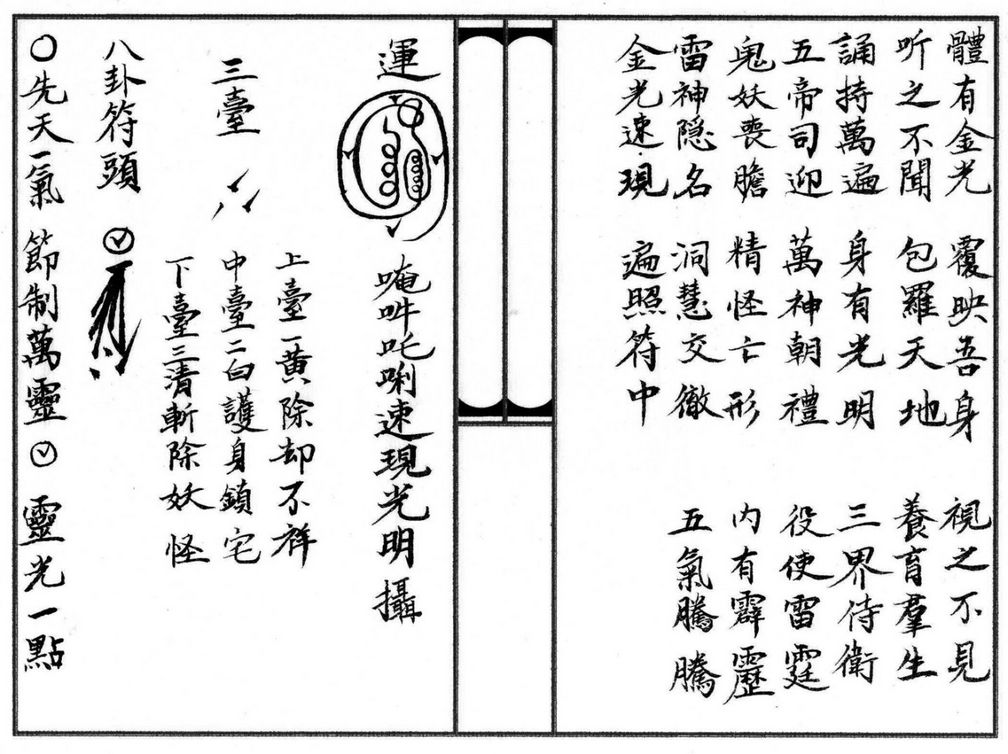 體有金光 覆映吾身 視之不見
听之不聞 包羅天地 養育羣生
誦持萬遍 身有光明 三界侍衛
五帝司迎 萬神朝禮 役使雷霆
鬼妖喪膽 精怪亡形 內有霹靂
雷神隐名 洞慧交徹 五氣騰騰
金光速現 遍照符中
運 唵吽吒唎速現光明攝
三臺 上臺一黄除却不祥
中臺二白護身鎖宅
下臺三清斬除妖怪
八卦符頭
○先天一氣 節制萬靈 靈光一點